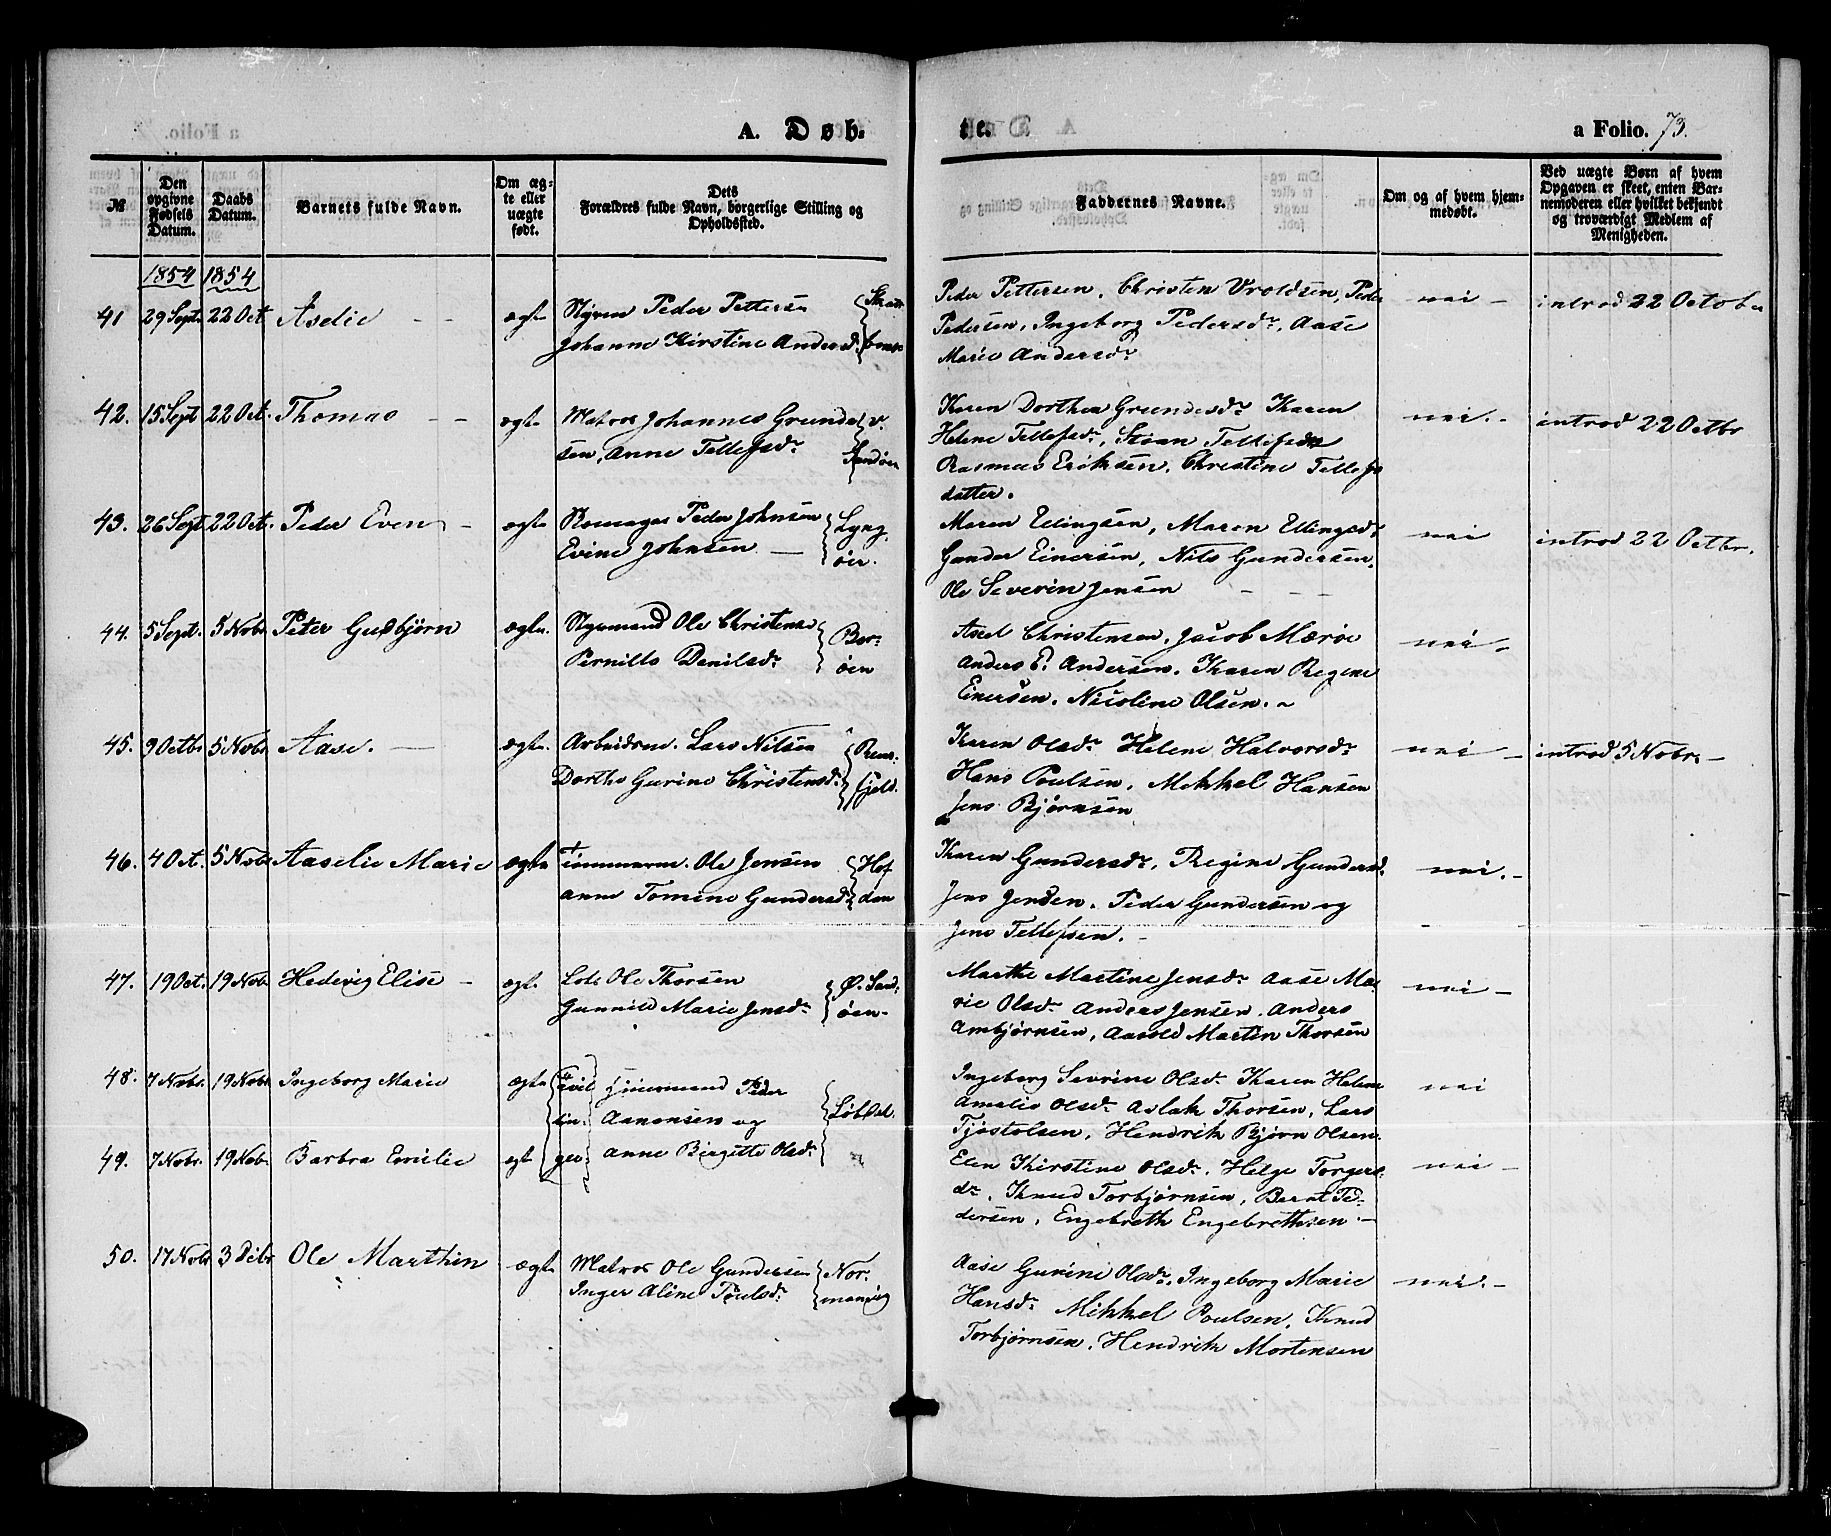 A. Døb-
te.
a Folio. 73.
№
Den opgivne Fødsels Datum.
Daabs Datum.
Barnets fulde Navn.
Om ægte eller uægte født.
Dets Forældres fulde Navn, borgerlige Stilling og Opholdssted.
Faddernes Navne.
Om og af hvem hjemmedøbt.
Ved uægte Børn af hvem Opgaven er skeet, enten Barnemoderen eller hvilket bekjendt og troværdigt Medlem af Menigheden.
1854 1854
41 29 Sept. 22 Oct Aselie – – ægte
Styrm Peder Pettersen
Johanne Kirstine Andersd.
Peder Pettersen, Christen Vroldsen, Peder
Pedersen, Ingeborg Pedersdr, Aase
Marie Andersdr
nei – introd 22 Octobe
42. 15 Sept 22 Oct. Thomas – – ægte
Matros Johannes Grunde
sen, Anne Tellefsdr
v. Sandøen
Karen Dorthea Grundesdr Karen
Helene Tellefsdr, Steen Tellefsen
Rasmus Eriksen, Christine Tellefs
datter.
nei. – introd 22 Octbr
43. 26 Sept. 22 Oct. Peder Even – ægte
Skomager Peder Johnsen
Evine Johnsen –
Lyng
øer.
Maren Ellingsen, Maren Ellingsdr
Gunder Einersen, Nils Gundersen,
Ole Severin Jensen – – –
nei introd 22 Octbr.
44. 5 Sept. 5 Nobr Peter Gudbjørn ægte.
Styrmand Ole Christense
Pernille Danilsdr
Bor-
øen
Axel Christensen, Jacob Mærøe
Anders E. Andersen, Karen Regine
Einersen, Nicoline Olsen. –
nei –
45. 9 Octbr 5 Nobr Aase. – ægte.
Arbeidsm. Lars Nilsen
Dorthe Gurine Christensdr
fjeld.
Karen Olsdr Helene Halvorsdr
Hans Poulsen, Mikkel Hansen
Jens Bjørnsen
nei – introd 5 Nobr. –
46. 4 Oct. 5 Nobr Aaselie Marie ægte
Tømmerm. Ole Jensen
Anne Tomine Gundersd
Hof
den
Karen Gundersdr, Regine Gundersd.
Jens Jensen, Peder Gundersen og
Jens Tellefsen. –
nei. –
47. 19 Oct. 19 Nobr Hedevig Elise – ægt.
Lods Ole Thorsen
Gunnild Marie Jensdr
Ø. Sand-
øen –
Marthe Martine Jensdr Aase Ma-
rie Olsdr Anders Jensen, Anders
Ambjørnsen, Aarold Martin Thorsen
nei –
48. 7 Nobr. 19 Nobr Ingeborg Marie ægte
Tvil
lin-
ger
Peder
Aanonsen og
Anne Birgitte Olsdr
Løbdal.
Ingeborg Sevrine Olsdr Karen Helene
Amalie Olsdr Aslak Thorsen, Lars
Tjøstolsen, Hendrik Bjørn Olsen.
nei
49. 7 Nobr. 19 Nobr. Barbra Emilie egt
Elen Kirstine Olsdr, Helge Torgers-
dr, Knud Torbjørnsen, Bernt Pe-
dersen, Engebreth Engebrethsen –
nei –
50. 17 Nobr 3 Debr Ole Marthin ægte
Matros Ole Gundersen
Inger Aline Poulsdr
Nor-
manvig
Aase Gurine Olsdr, Ingeborg Marie
Hansdr Mikkel Poulsen, Knud
Torbjørnsen, Hendrik Mortensen
nei. –